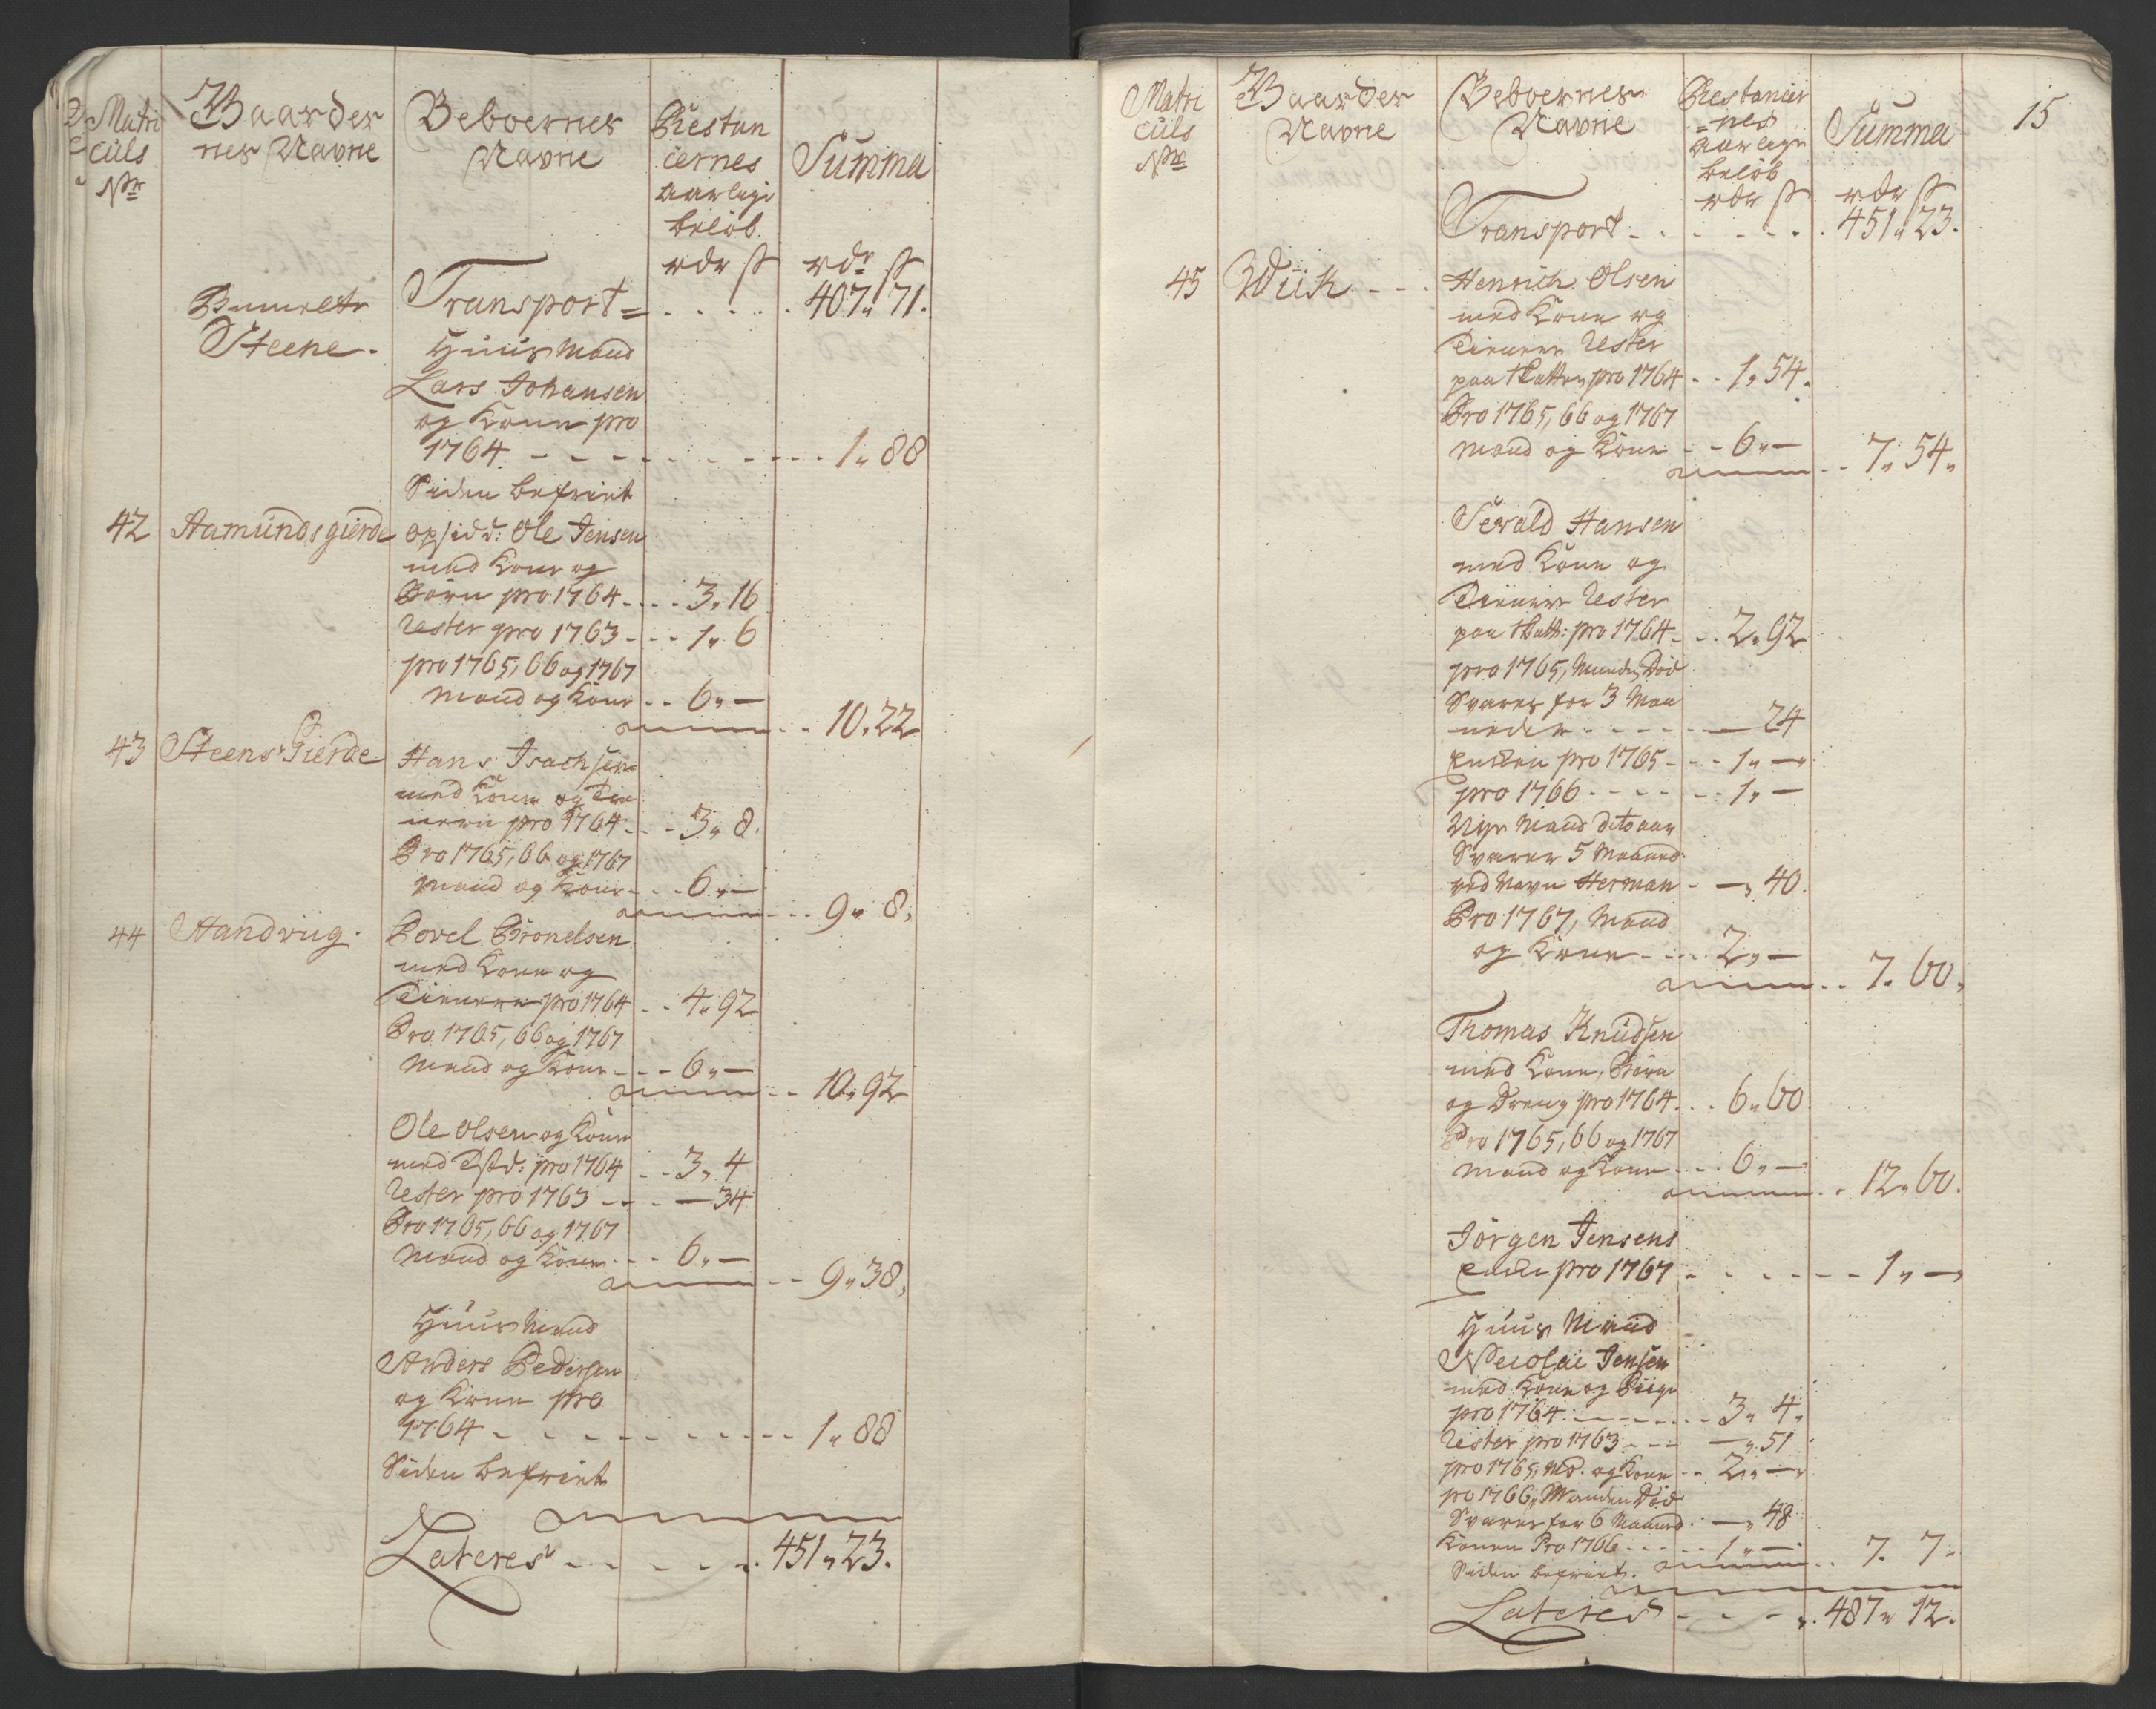 Matri
culs
Nr
Gaarder
nes Navne
Beboernes
Navne
Restan
cernes
aarlige
beløb
rdr ß
Summa
rdr ß
Transport = . . . . . 407 " 71.
Steene.
Huusmand
Lars Johansen
og Kone pro
1764. - - - - - 1 " 88
Siden befriet
42 Aamundsgierde opsidd: Ole Jensen
med Kone og
Børn pro 1764 - - - 3 " 16
Rester pro 1763 - - - 1 " 6
pro 1765, 66 og 1767
Mand og Kone - - 6 " —
10 " 22
43 Steens Gierde Hans Isachsen
med Kone og Tie
nere pro 1764 - - - 3 " 8.
Pro 1765, 66 og 1767
Mand og Kone - - - 6 " —
9 " 8.
44 Handviig. Povel Bronelsen
med Kone og
Tienere pro 1764 - - 4 " 92
Pro 1765, 66 og 1767
Mand og Kone - - - 6 " —
10 " 92
Ole Olsen og Kone
med pro 1764 - - 3 " 4
Rester pro 1763 - - - — 34
Pro 1765, 66 og 1767
Mand og Kone - - - 6 " —
9 " 38.
Huusmand
Anders Pedersen
og Kone pro
1764 - - - - - - 1 " 88
Siden befriet
Lateres - - - - - 451 " 23.
15
Matri
culs
Nr
Gaarder
Navne
Beboernes
Navne
Restancer
=nes
aarlige
beløb
rdr ß
Summa
rdr ß
Transport - - - - - 451 " 23.
45 Wiik - - - Henrich Olsen
med Kone og
Tienere Rester
paa Skatten pro 1764 - - 1 " 54.
Pro 1765, 66 og 1767
Mand og Kone - - 6 " —
7 " 54 "
Sevald Hansen
med Kone og
Tienere Rester
paa Skatt: pro 1764 - - 2 " 92
pro 1765, Manden Død
Svarer for 3 Maa
neder - - - - - — 24
Enken pro 1765 - - - 1 " —
pro 1766 - - - - - 1 " —
Nye Mand dito aar
Svarer 5 Maaned
ved Navn Herman - — " 40.
Pro 1767, Mand
og Kone - - - - 2 " —
7 " 60,
Thomas Knudsen
med Kone, Børn
og Dreng pro 1764 - - 6 " 60
Pro 1765, 66 og 1767
Mand og Kone - - - 6 " —
12 " 60.
Jörgen Jensens
Enke pro 1767 - - - - - 1 " —
Huus Mand
Neiolai Jensen
med Kone og Piige
pro 1764 - - - - - 3 " 4.
Rester pro 1763 - - - — " 51
pro 1765, Md. og Kone - - 2 " —
pro 1766, Manden Død
Svarer for 6 Maaned. — " 48
Konen Pro 1766 - - - - 1 " —
Siden befriet. 7 " 7 "
Lateres - - - - 487 " 12.